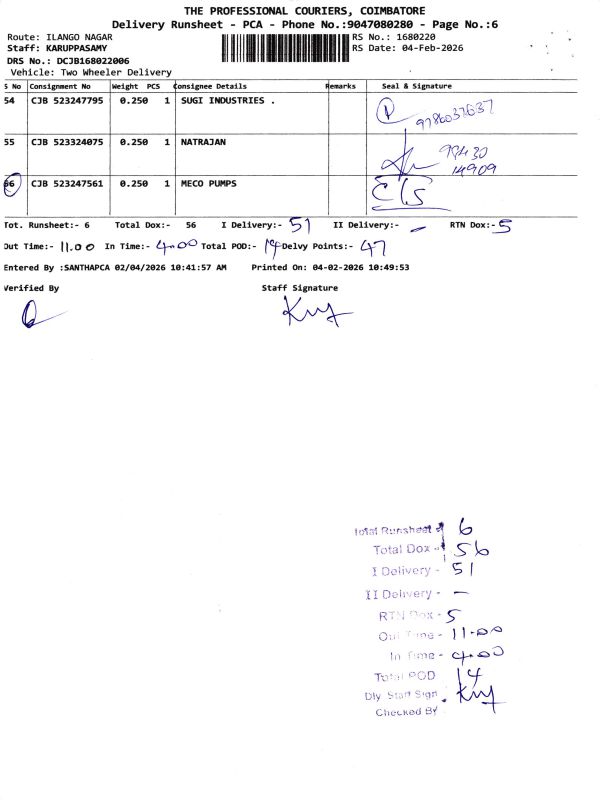 THE PROFESSIONAL COURIERS, COIMBATORE
Delivery Runsheet - PCA - Phone No.:9047080280 - Page No.:6
Route: ILANGO NAGAR RS No.: 1680220
Staff: KARUPPASAMY RS Date: 04-Feb-2026
DRS No.: DCJB168022006
Vehicle: Two Wheeler Delivery
S No Consignment No Weight PCS Consignee Details Remarks Seal & Signature
54 CJB 523247795 0.250 1 SUGI INDUSTRIES .
55 CJB 523324075 0.250 1 NATRAJAN 99430
14909
56 CJB 523247561 0.250 1 MECO PUMPS
Tot. Runsheet:- 6 Total Dox:- 56 I Delivery:- 51 II Delivery:- - RTN Dox:- 5
Out Time:- 11.00 In Time:- 4.00 Total POD:- 14 Delvy Points:- 47
Entered By :SANTHAPCA 02/04/2026 10:41:57 AM Printed On: 04-02-2026 10:49:53
Verified By Staff Signature
Total Runsheet - 6
Total Dox - 56
I Delivery - 51
II Delivery - -
RTN Dox - 5
Out Time - 11.00
In Time - 4.00
Total POD 14
Dly Staff Sign.
Checked By